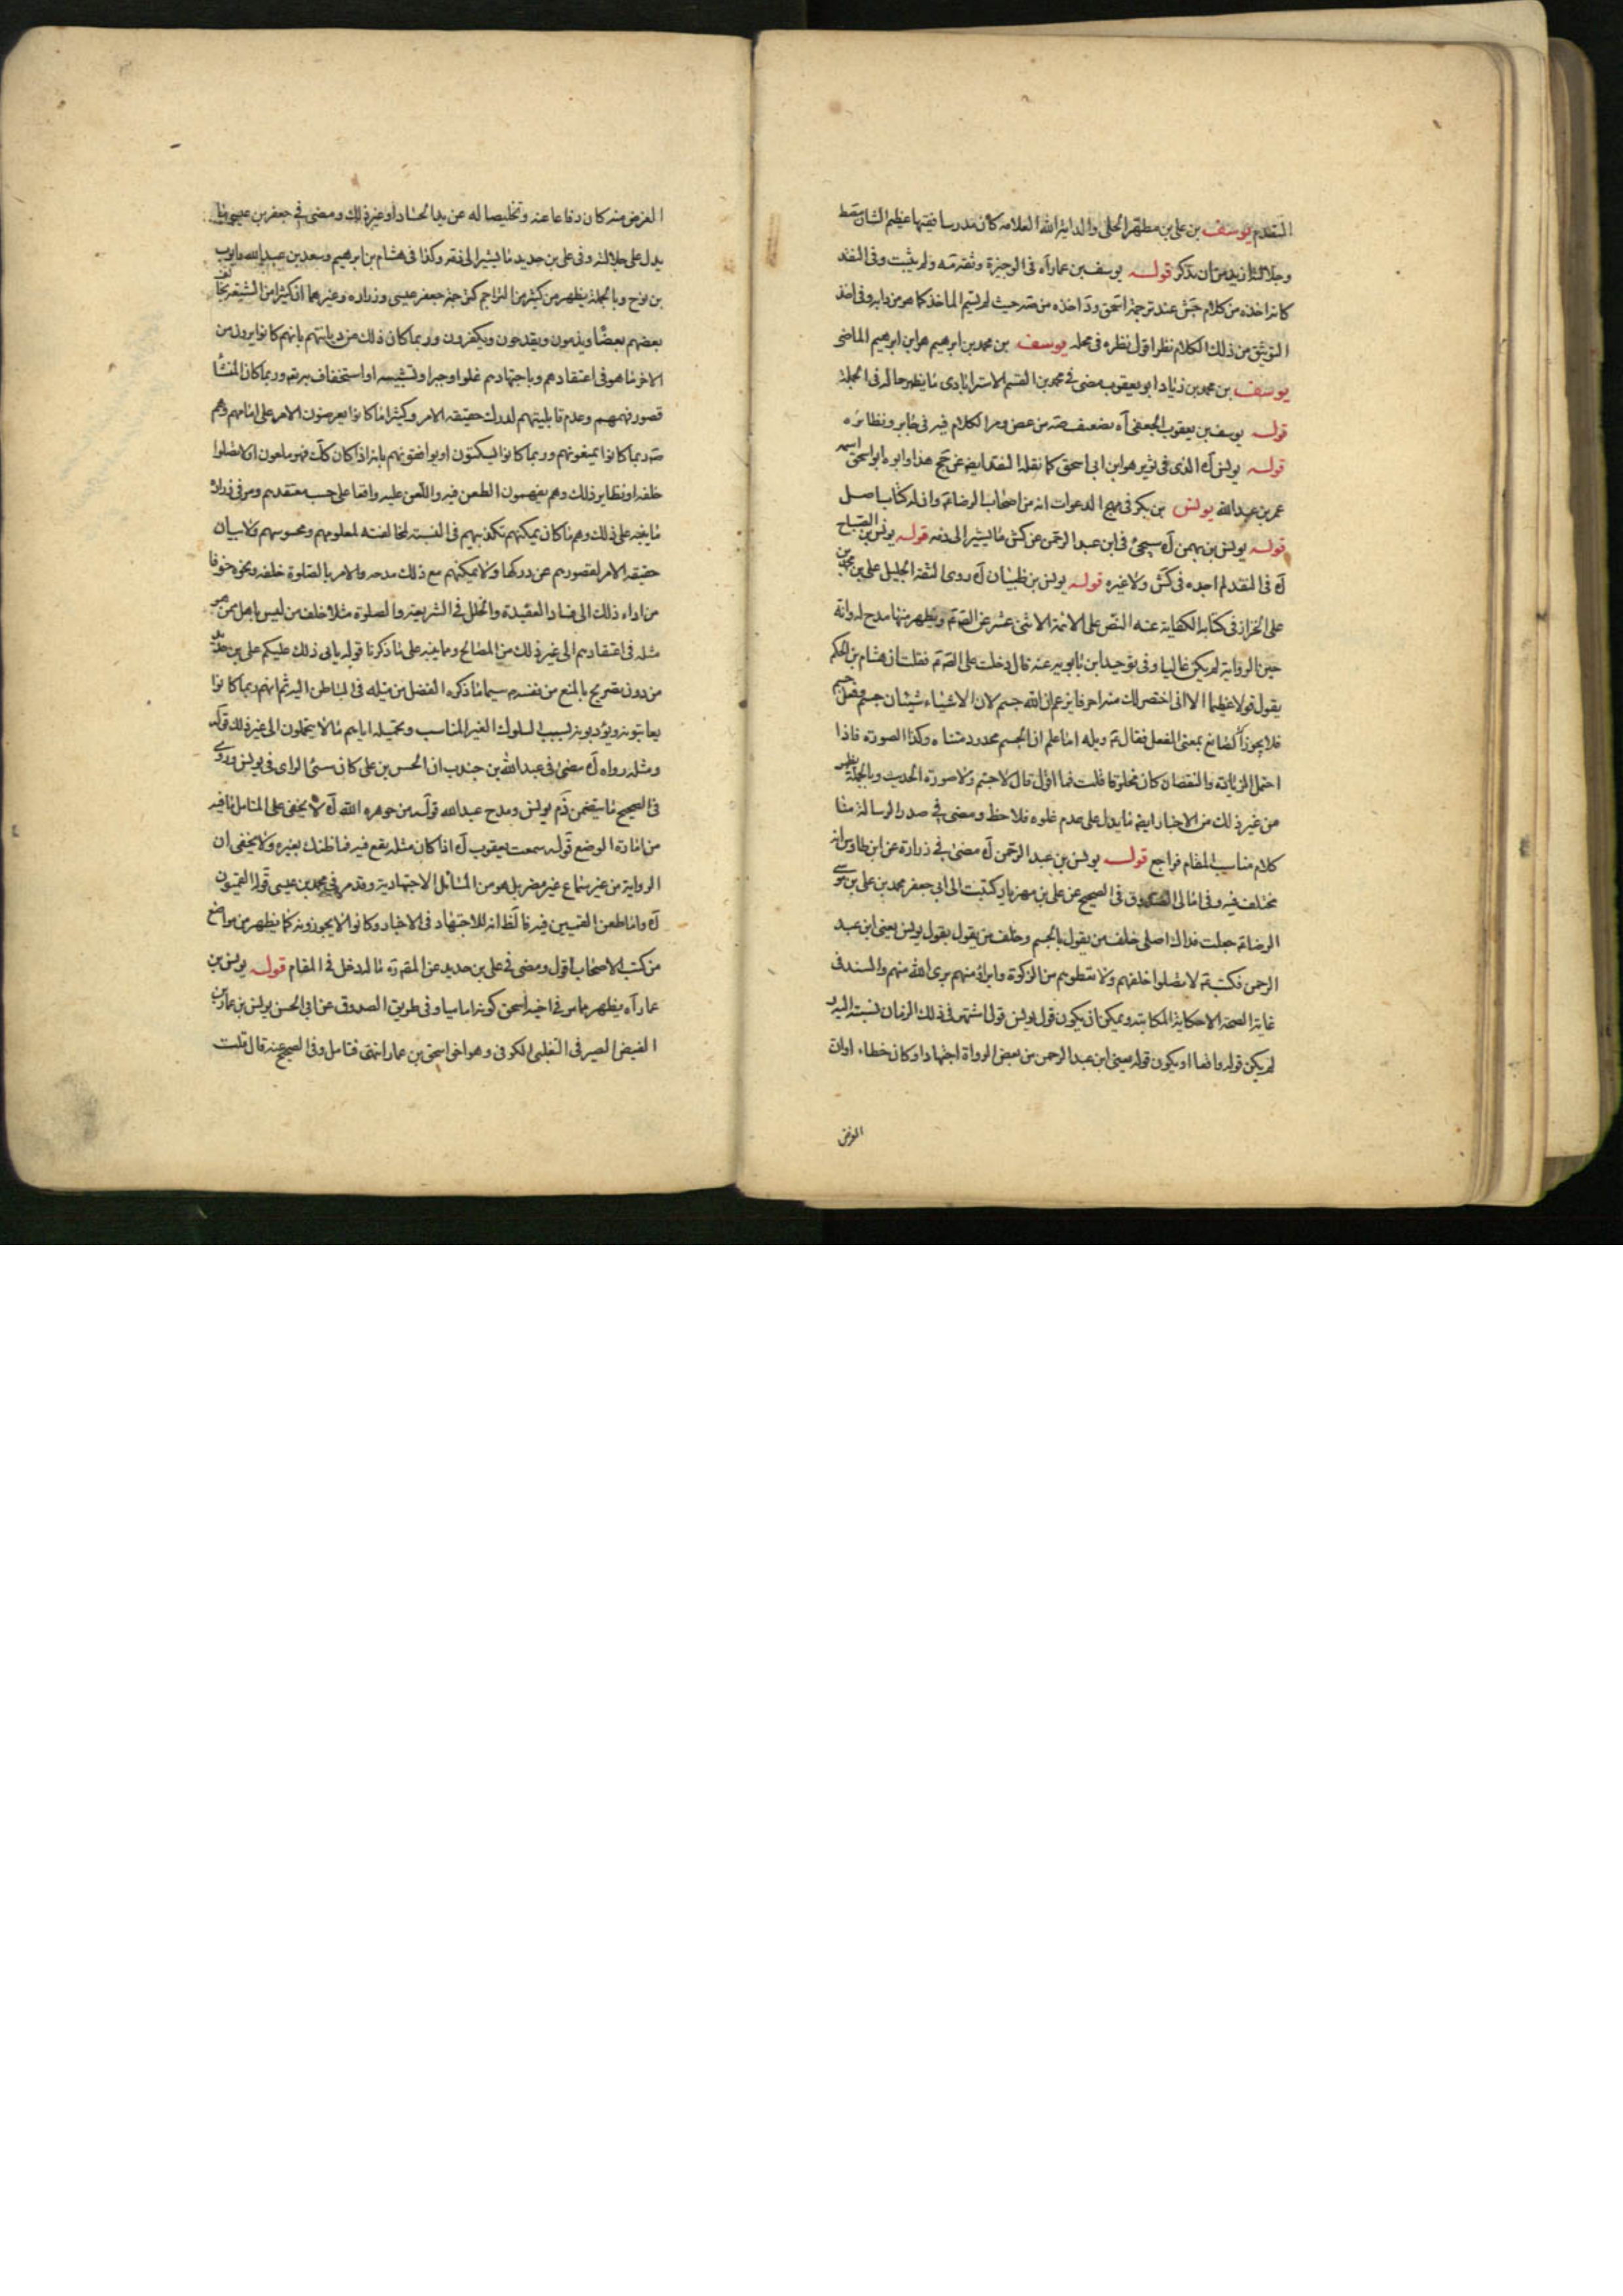 المتقدم يوسف بن علي بن مطهر الحلي والد اية الله العلامه كان مدرسا فقيها عظيم الشان
وجلالته ازيد من ان تذكر قوله يوسف بن عمار آه في الوجيزة وثقه ولم يثبت وفي النقد
كانه اخذه من كلام جش عند ترجمة اسحق اخذه من حيث لم يتم الماخذ كما هو من دابه وفي اخذ
التوثيق من ذلك الكلام نظر اقول نظره في محله يوسف بن محمد بن ابرهيم هو ابن ابرهيم الماضي
يوسف بن محمد بن زياد ابو يعقوب مضى في محمد بن القسم الاسترابادي ما يظهر حاله في الجملة
قوله يوسف بن يعقوب الجعفي آه من غض ومر الكلام فيه في جابر ونظائره
قوله يونس الذي في ثوير هو ابن ابي اسحق كما نقله النقد ايضا عن جخ هذا وابوه ابو اسحق اسمه
عمر بن عبد الله يونس بن بكر في مهج الدعوات انه من اصحاب الرضا ع وان له كتابا اصل
قوله يونس بن بهمن سيجئ في ابن عبد الرحمن عن كش ما يشير الى ذمه قوله يونس بن الصباح
في النقد لم اجده في كش ولا غيره قوله يونس بن ظبيان روى الثقة الجليل علي بن محمد بن
علي الخزاز في كتابه الكفاية عنه النص على الائمة الاثنى عشر عن ويظهر منها مدح له وانه
حين الرواية لم يكن غاليا وفي توحيد ابن بابويه عنه قال دخلت على فقلت ان هشام بن الحكم
يقول قولا عظيما الا اني اختصر لك منه احرفا يزعم ان الله جسم لان الاشياء شيئان جسم وفعل جسم
فلا يجوز الصانع بمعنى الفعل فقال ويله اما علم ان الجسم محدود متناه وكذا الصورة فاذا
احتمل الزيادة والنقصان كان مخلوقا قلت فما اقول قال لا جسم ولا صورة الحديث وبالجملة يظهر
من غير ذلك من الاخبار ايضا ما يدل على عدم غلوه فلاحظ ومضى في صدر الرسالة منا
كلام مناسب المقام فراجع قوله يونس بن عبد الرحمن مضى في زرارة عن ابن طاوس انه
مختلف فيه وفي امالي الصدوق في الصحيح عن علي بن مهزيار كتبت الى ابي جعفر محمد بن علي بن موسى
الرضا ع جعلت فداك اصلي خلف من يقول بالجسم وخلف من يقول بقول يونس يعني ابن عبد
الرحمن فكتب لا تصلوا خلفهم ولا تعطوهم من الزكوة وابراؤ منهم برئ الله منهم والسند في
غاية الصحة الا حكاية المكاتبة ويمكن ان يكون قول يونس قولا اشتهر في ذلك الزمان نسبته اليه
لم يكن قوله واقعا او يكون قوله يعني ابن عبد الرحمن من بعض الرواة اجتهادا وكان خطاء او ان
الغرض
الغرض منه كان دفاعا عنه وتخليصا له عن يد الحساد او غير ذلك ومضى في جعفر بن عيسى ما
يدل على جلالته وفي علي بن حديد ما يشير الى فقه وكذا في هشام بن ابرهيم وسعد بن عبد الله وايوب
بن نوح وبالجملة يظهر من كثير من التراجم كترجمة جعفر عيسى وزراره وغيرهما ان كثيرا من الشيعة
بعضهم بعضا ويذمون ويقدحون ويكفرون وربما كان ذلك من ديانتهم بانهم كانوا يرون من
الاخر ما هو في اعتقادهم وباجتهادهم غلوا وجبرا وتشبيها او استخفاف به وربما كان المنشأ
قصور فهمهم وعدم قابليتهم لدرك حقيقة الامر وكثيرا ما كانوا يعرضون الامر على امامهم وهم
ع ربما كانوا يمنعونهم وربما كانوا ليسكتون او يوافقونهم بانه اذا كان كك فهو ملعون او لا تصلوا
خلفه او نظاير ذلك وهم يفهمون الطعن فيه واللعن عليه واقعا على حسب معتقدهم ومر في زرارة
ما ينبه على ذلك وهم ما كان يمكنهم تكذيبهم في النسبة لمخالفته لمعلومهم ومحسوسهم ولا بيان
حقيقة الامر لقصورهم عن دركها ولا يمكنهم مع ذلك مدحه والامر بالصلوة خلفه ونحوه خوفا
من اداء ذلك الى فساد العقيدة والخلل في الشريعة والصلوة مثلا خلف من ليس باهل ممن هو
مثله في اعتقادهم الى غير ذلك من المصالح ومما ينبه على ما ذكرنا قوله يابى ذلك عليكم علي بن حديد
من دون تصريح بالمنع من نفسه سيما ما ذكره الفضل من ميله في الباطن اليه ثم انهم ربما كانوا
يعاتبونه ويؤدبونه بسبب السلوك الغير المناسب وتحميله اياهم ما لا يتحملون الى غير ذلك قوله
ومثله رواه مضى في عبد الله بن جندب ان الحسن بن علي كان سئ الراى في يونس وروى
في الصحيح ما يتضمن ذم يونس ومدح عبد الله قوله من جوهره الله لا يخفى على المتامل ما فيه
من امارة الوضع قوله سمعت يعقوب اذا كان مثله يقع فيه فما ظنك بغيره ولا يخفى ان
الرواية من غير سماع غير مضر بل هو من المسائل الاجتهادية وقد مر في محمد بن عيسى قوله القميون
واما طعن القميين فيه فالظ انه للاجتهاد في الاخبار وكانوا لا يجوزونه كما يظهر من مواضع
من كتب الاصحاب اقول ومضى في علي بن حديد عن المقدمة ما له دخل في المقام قوله يونس بن
عمار آه يظهر مما مر في اخيه اسحق كونه اماميا وفي طريق الصدوق عن ابي الحسن يونس بن عمار بن
الفيض الصيرفي التغلبي الكوفي وهو اخو اسحق بن عمار انتهى فتامل وفي الصحيح عنه قال قلت